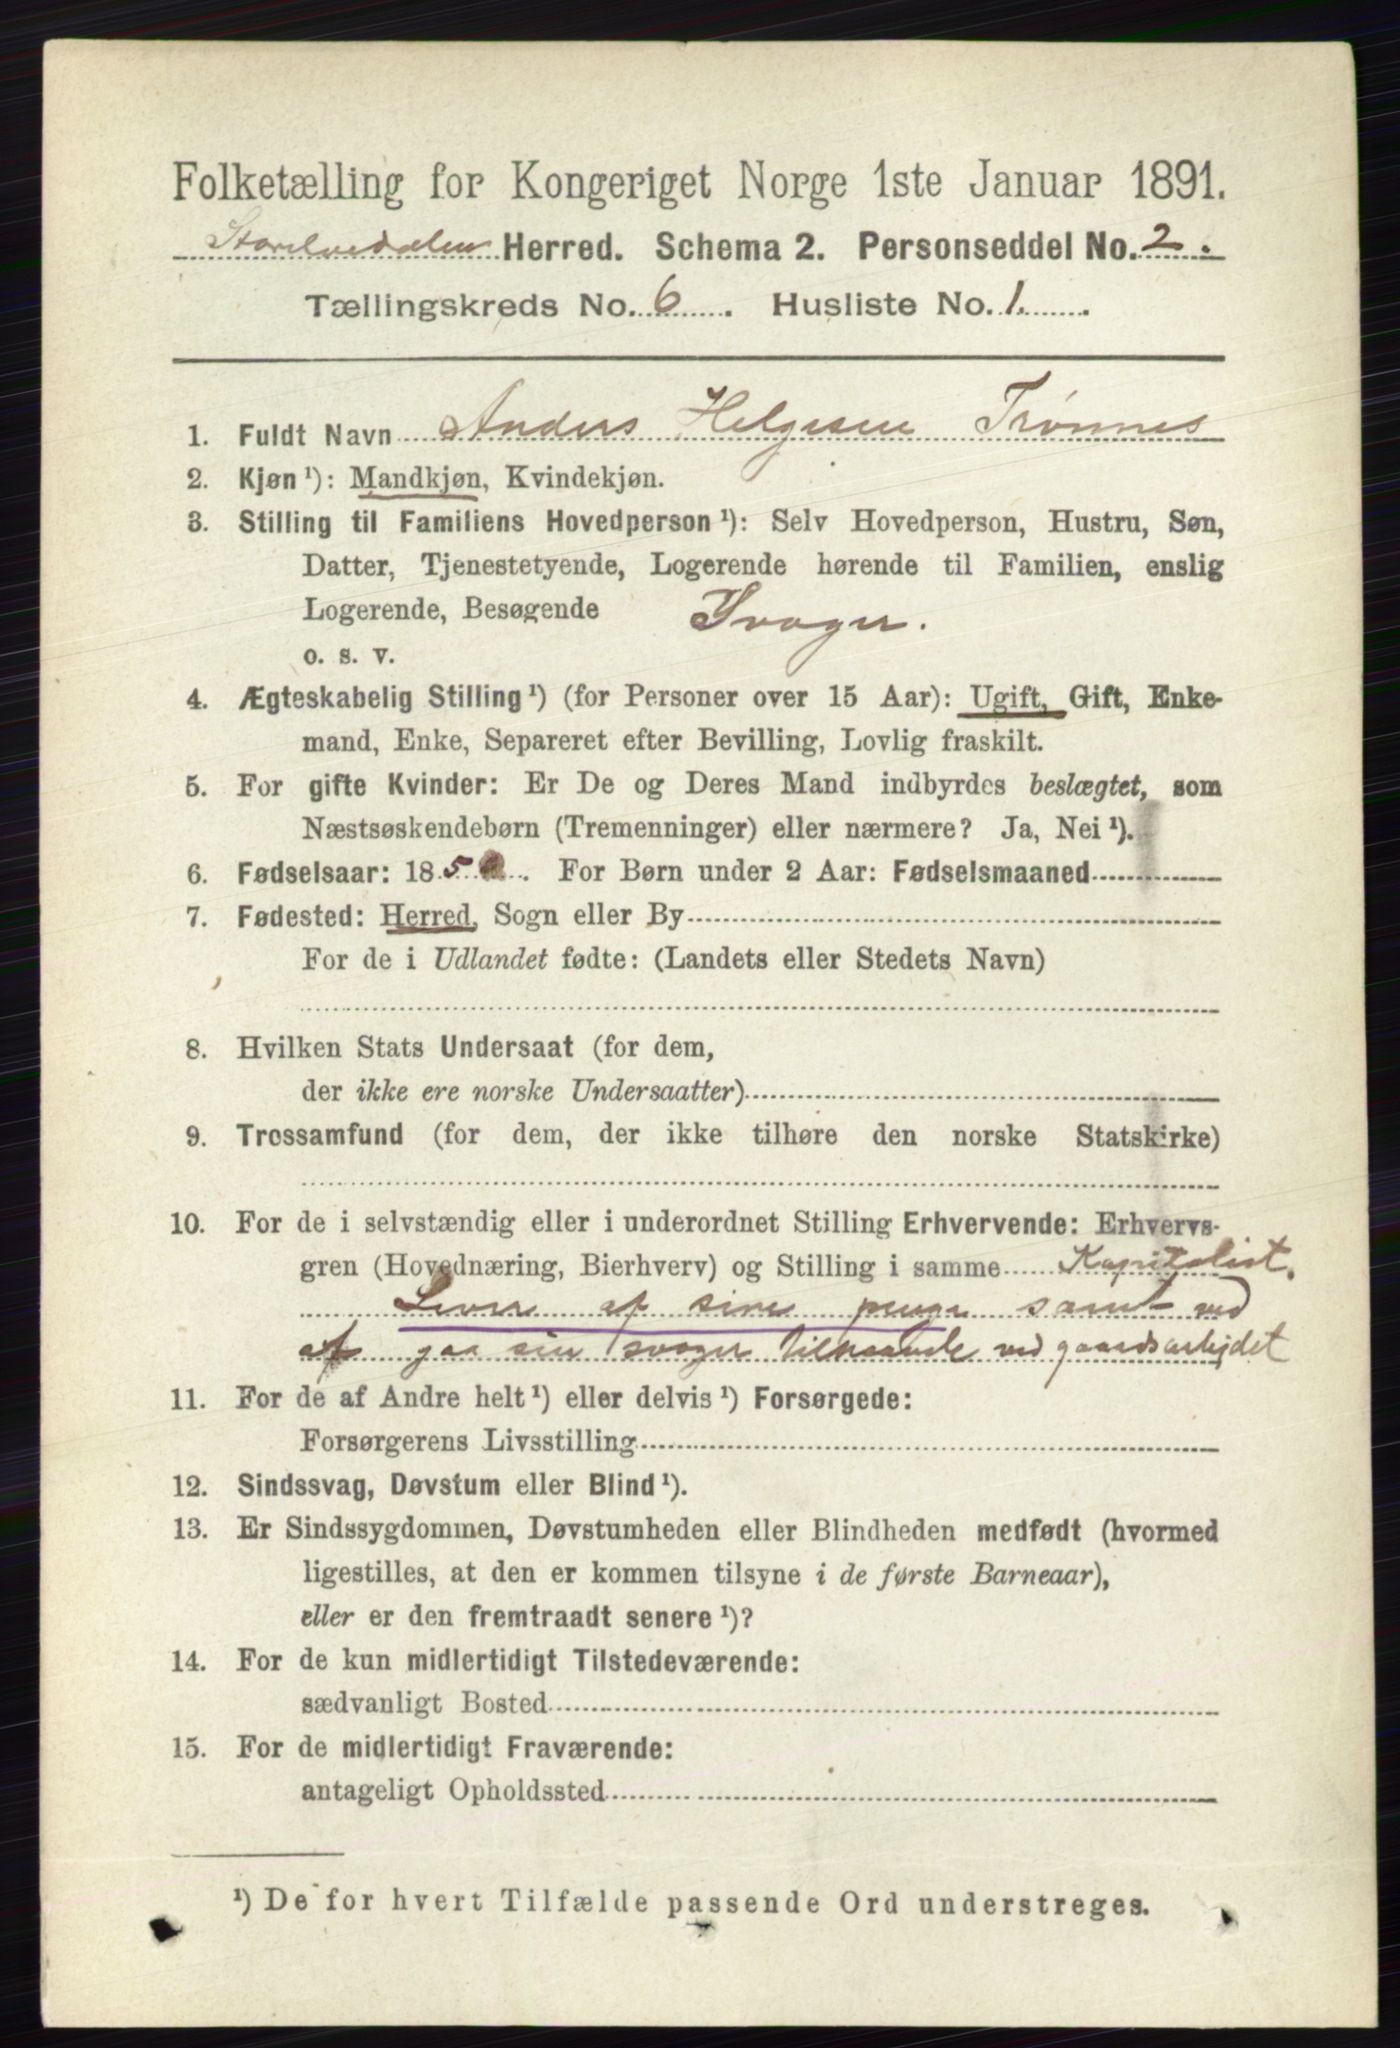 Folketælling for Kongeriget Norge 1ste Januar 1891.
Storelvedalen Herred. Schema 2. Personseddel No. 2.
Tællingskreds No. 6. Husliste No. 1.
1. Fuldt Navn Anders Helgesen Trønnes
2. Kjøn ¹): Mandkjøn, Kvindekjøn.
3. Stilling til Familiens Hovedperson ¹): Selv Hovedperson, Hustru, Søn,
Datter, Tjenestetyende, Logerende hørende til Familien, enslig
Logerende, Besøgende Svoger.
o. s. v.
4. Ægteskabelig Stilling ¹) (for Personer over 15 Aar): Ugift, Gift, Enke-
mand, Enke, Separeret efter Bevilling, Lovlig fraskilt.
5. For gifte Kvinder: Er De og Deres Mand indbyrdes beslægtet, som
Næstsøskendebørn (Tremenninger) eller nærmere? Ja, Nei ¹).
6. Fødselsaar: 185 . For Børn under 2 Aar: Fødselsmaaned
7. Fødested: Herred, Sogn eller By
For de i Udlandet fødte: (Landets eller Stedets Navn)
8. Hvilken Stats Undersaat (for dem,
der ikke ere norske Undersaatter)
9. Trossamfund (for dem, der ikke tilhøre den norske Statskirke)
10. For de i selvstændig eller i underordnet Stilling Erhvervende: Erhvervs-
gren (Hovednæring, Bierhverv) og Stilling i samme Kapitalist.
Lever af sine penge samt ved
at gaa sin svoger tilhaande ved gaardsarbejdet
11. For de af Andre helt ¹) eller delvis ¹) Forsørgede:
Forsørgerens Livsstilling
12. Sindssvag, Døvstum eller Blind ¹).
13. Er Sindssygdommen, Døvstumheden eller Blindheden medfødt (hvormed
ligestilles, at den er kommen tilsyne i de første Barneaar),
eller er den fremtraadt senere ¹)?
14. For de kun midlertidigt Tilstedeværende:
sædvanligt Bosted
15. For de midlertidigt Fraværende:
antageligt Opholdssted
¹) De for hvert Tilfælde passende Ord understreges.